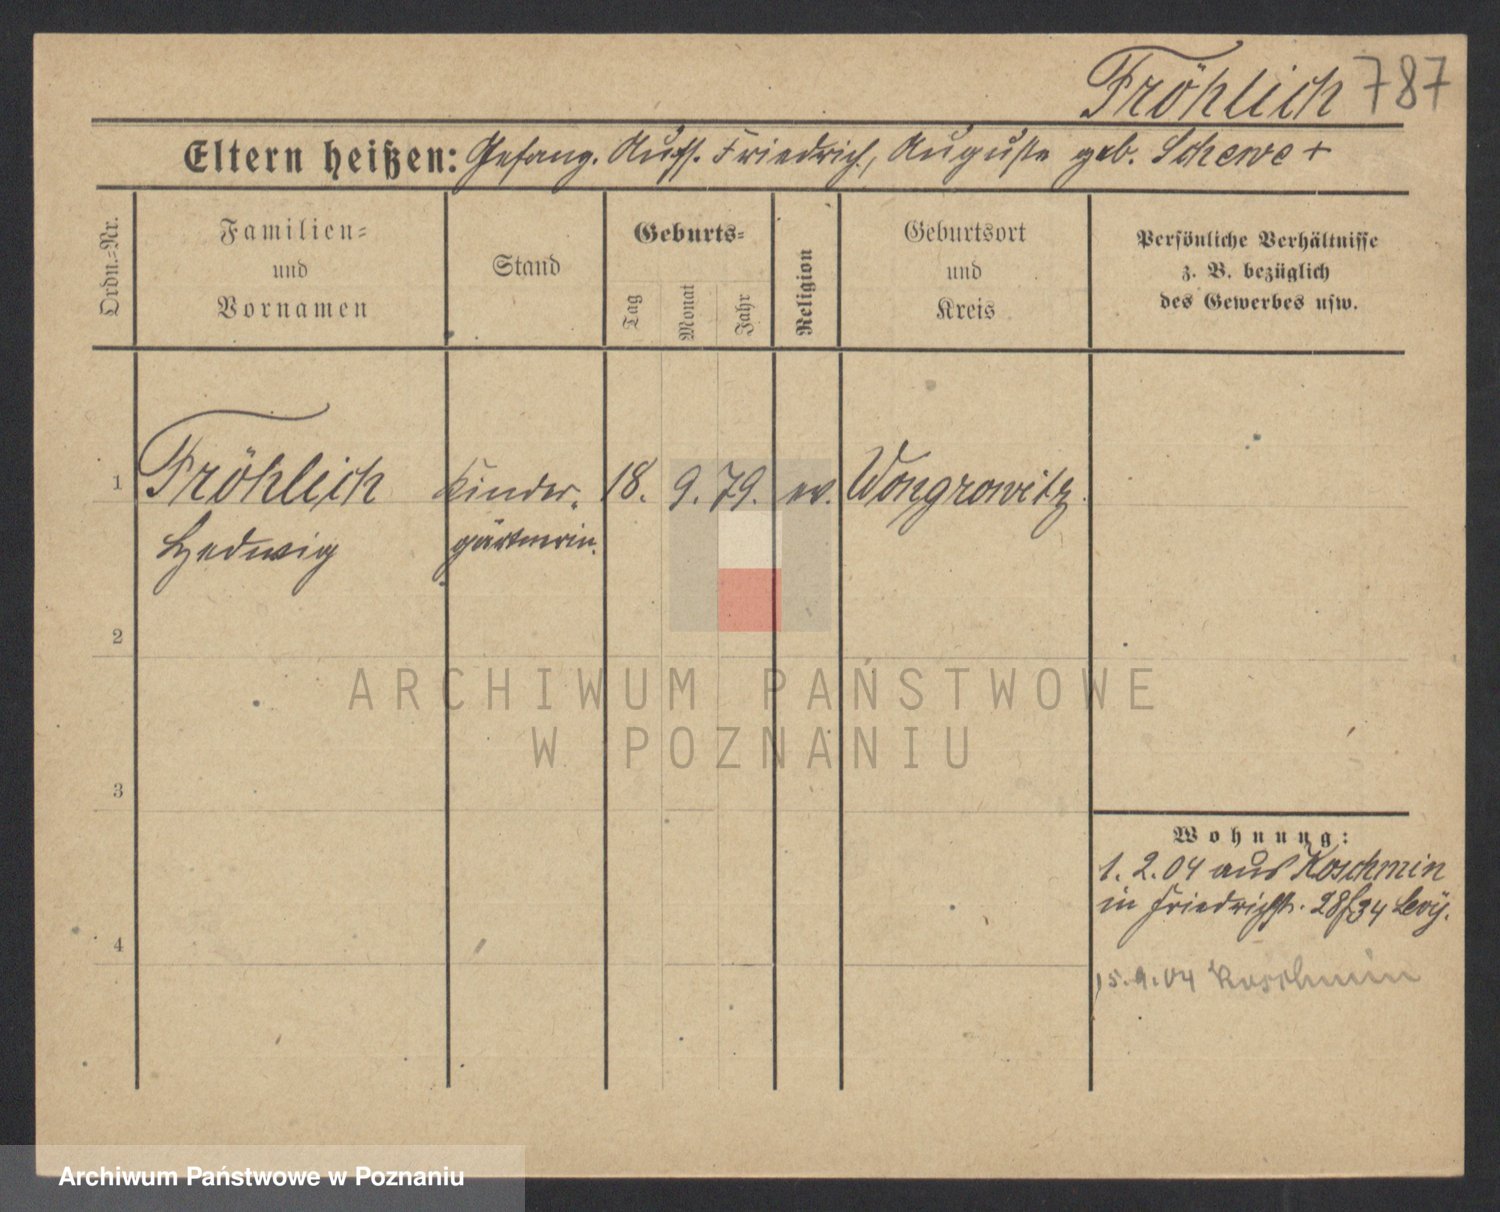 Fröhlich 787
Eltern heißen: Gefang. Aufs. Friedrich, Auguste geb. Schewe +
Ordn.-Nr.
Familien-
und
Vornamen
Stand
Geburts-
Tag
Monat
Jahr
Religion
Geburtsort
und
Kreis
Persönliche Verhältnisse
z. B. bezüglich
des Gewerbes usw.
1 Fröhlich Kinder- 18. 9. 79. ev. Wongrowitz
Hedwig gärtnerin.
2
ARCHIWUM PAŃSTWOWE
W POZNANIU
3
Wohnung:
1. 2. 04 aus Koschmin
in Friedrichstr. 28 34
4
15. 9. 04 Koschmin
Archiwum Państwowe w Poznaniu